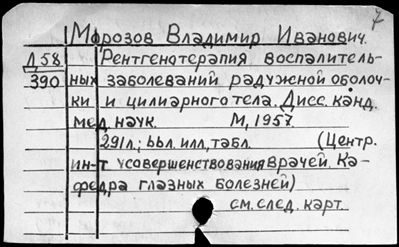 7
Морозов Владимир Иванович.
Д58 Рентгенотерапия воспалитель-
390 ных заболеваний радужной оболоч-
ки и цилиарного тела. Дисс. канд.
мед наук. М, 1957.
291л.; 66л. илл, табл. (Центр.
ин-т усовершенствования врачей. Ка-
федра глазных болезней)
см. след. карт